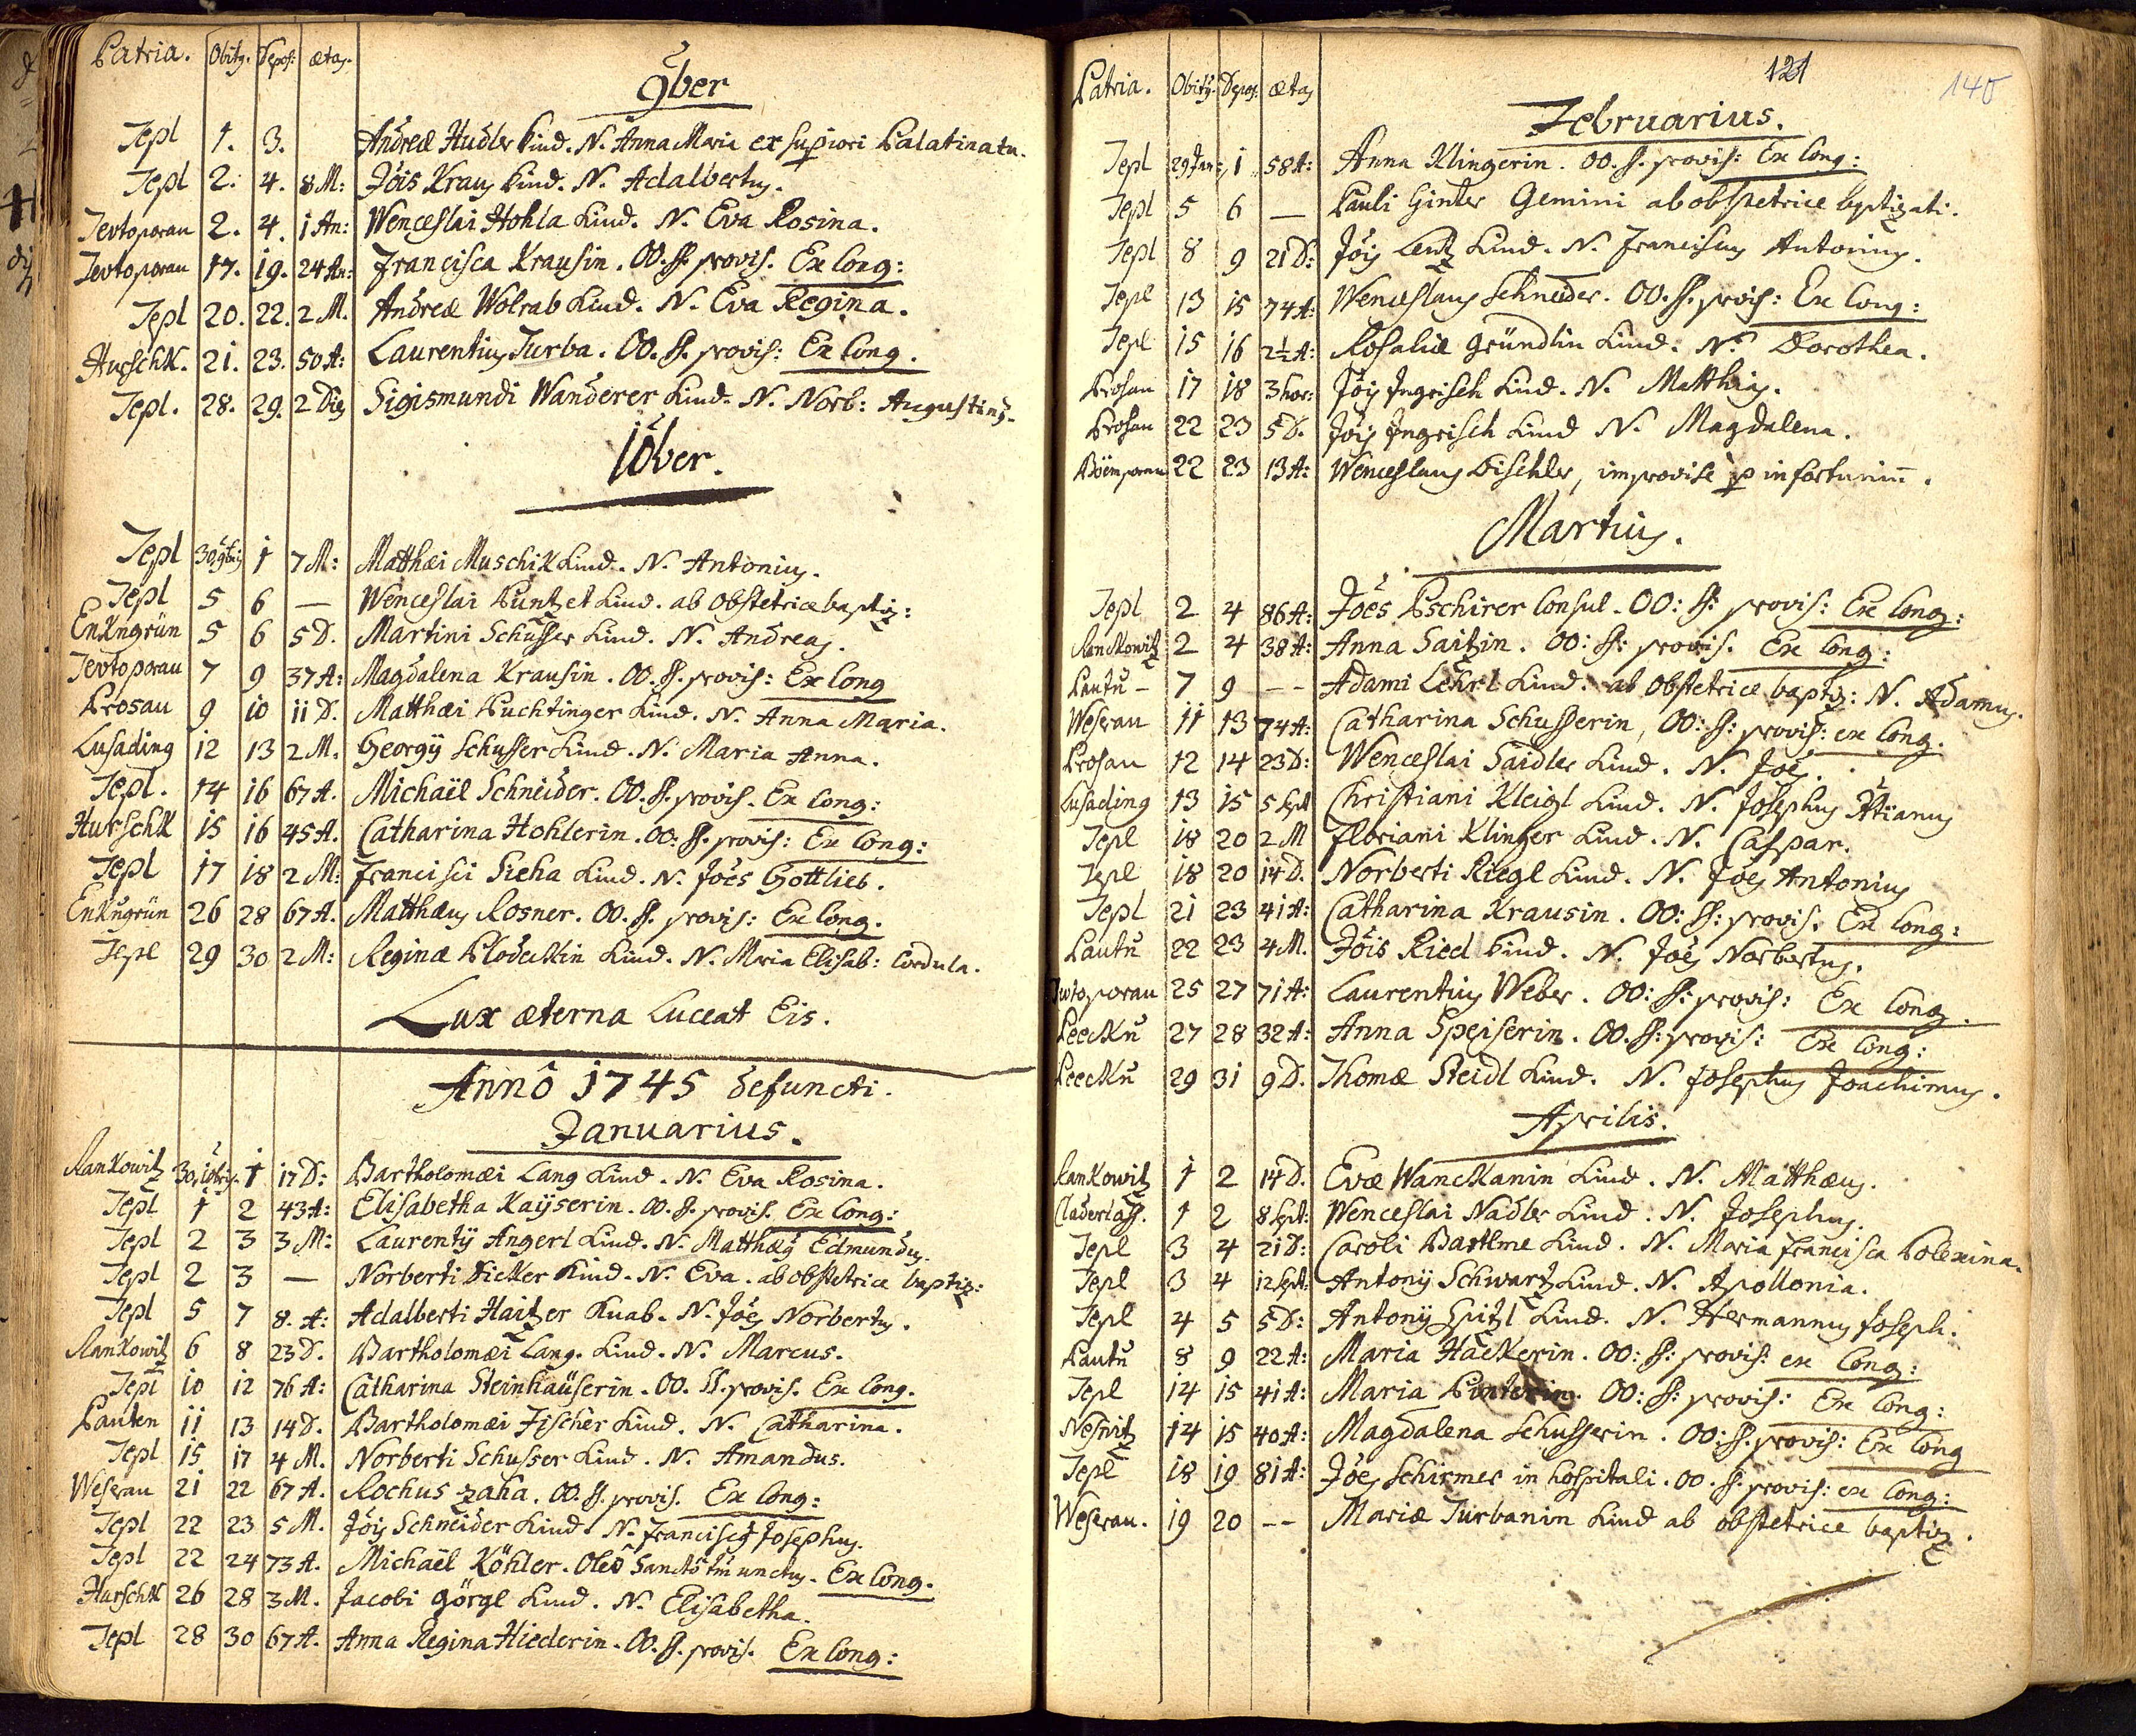 Patria. Obitq. Depos: ætas.
9ber
Tepl 1. 3. Andreæ Hudler Kind. N. Anna Maria ex supiori Palatinatu.
Tepl 2. 4. 8 M: Jöis Kraus Kind. N. Adalbertus.
Tevtoporau 2. 4. 1 An: Wenceslai Hohla Kind. N. Eva Rosina.
Tevtoporau 17. 19. 24 An: Francisca Krausin. OO. SS. provis. Ex Cong:
Tepl 20. 22. 2 M. Andreæ Wolrab Kind. N. Eva Regina.
Hurschk. 21. 23. 50 A: Laurentius Turba. OO. SS. provis: Ex Cong.
Tepl. 28. 29. 2 Dies Sigismundi Wanderer Kind. N. Norb: Augustinus.
10ber.
Tepl 30. 9bris 1 7 M: Matthæi Muschik Kind. N. Antonius.
Tepl 5 6 — Wenceslai Puntzet Kind. ab Obstetrice baptiz:
Enkngrün 5 6 5 D. Martini Schusser Kind. N. Andreas.
Tevtoporau 7 9 37 A: Magdalena Krausin. OO. SS. provis: Ex Cong
Prosau 9 10 11 D. Matthæi Puchtinger Kind. N. Anna Maria.
Lusading 12 13 2 M. Georgÿ Schusser Kind. N. Maria Anna.
Tepl. 14 16 67 A. Michaël Schneider. OO. SS. provis. Ex Cong:
Hurschk 15 16 45 A. Catharina Hohlerin. OO: SS. provis: Ex Cong:
Tepl 17 18 2 M: Francisci Sieha Kind. N. Joës Gottlieb.
Enkngrün 26 28 67 A. Matthæus Rosner. OO. SS. provis: Ex Cong.
Tepl 29 30 2 M: Reginæ Plodeckin Kind. N. Mria Elisab: Cordula.
Lux æterna Luceat Eis.
Annô 1745 defuncti.
Januarius.
Rankowitz 30. 10bris. 1 17 D: Bartholomæi Lang Kind. N. Eva Rosina.
Tepl 1 2 43 A: Elisabetha Kaÿserin. OO. SS. provis. Ex Cong:
Tepl 2 3 3 M: Laurentÿ Angerl Kind. N. Matthæg Edmundus.
Tepl 2 3 — Norberti Sicker Kind. N. Eva. ab obstetrice baptiz:
Tepl 5 7 8. A: Adalberti Haitzer Knab. N. Jöes Norbertus.
Rankowitz 6 8 23 D. Bartholomæi Lang. Kind. N. Marcus.
Tepl 10 12 76 A: Catharina Steinhaüserin. OO. SS. provis. Ex Cong.
Pauten 11 13 14 D. Bartholomæi Fischer Kind. N. Catharina.
Tepl 15 17 4 M. Norberti Schusser Kind. N. Amandus.
Weserau 21 22 67 A. Rochus Zaha. OO. SS. provis. Ex Cong:
Tepl 22 23 5 M. Jöis Schneider Kind. N. Franciscg Josephus.
Tepl 22 24 73 A. Michaël Köhler. Oleô Sanctô tm unctus. Ex Cong.
Hurschk 26 28 3 M. Jacobi Görgl Kind. N. Elisabetha.
Tepl 28 30 67 A. Anna Regina Hiederin. OO. SS. provis. Ex Cong:
121
140
Patria. Obitq. Depos. ætas
Februarius.
Tepl 29 Jan: 1 58 A: Anna Klingerin. OO. SS. provis: Ex Cong:
Tepl 5 6 — Pauli Ginter Gemini ab obstetrice baptizati.
Tepl 8 9 21 D: Jöis Lentz Kind. N. Franciscus Antonius.
Tepl 13 15 74 A: Wenceslaus Schneider. OO. SS. provis: Ex Cong:
Tepl 15 16 2½ A: Rosaliæ Gründlin Kind. N. Dorothea.
Prosau 17 18 3 hor: Jöis Ingrisch Kind. N. Matthias.
Prosau 22 23 5 D. Jöis Ingrisch Kind N. Magdalena.
Böemporau 22 23 13 A: Wenceslaus Dischler, improvise p infortuniū.
Martius.
Tepl 2 4 86 A: Joës Pschirer Consul. OO: SS: provis: Ex Cong:
Ranckowitz 2 4 38 A: Anna Saitzin. OO: SS: provis. Ex Cong:
Pautn — 7 9 -- Adami Lehrl Kind. ab Obstetrice baptiz: N. Adamus.
Weserau 11 13 74 A: Catharina Schusserin, OO: SS: provis: ex Cong.
Prosau 12 14 23 D: Wenceslai Saidler Kind. N. Joës.
Lusading 13 15 5 Sept Christiani Kleigl Kind. N. Josephus Xtianus
Tepl 18 20 2 M Floriani Klinger Kind. N. Caspar.
Tepl 18 20 14 D. Norberti Riegl Kind. N. Jöes Antonius
Tepl 21 23 41 A: Catharina Krausin. OO: SS: provis. Ex Cong:
Pautn 22 23 4 M. Jöis Ried Kind. N. Joës Norbertus.
Tevtoporau 25 27 71 A: Laurentius Weber. OO: SS: provis: Ex Cong.
Peeckn 27 28 32 A: Anna Speiserin. OO. SS: provis: Ex Cong:
Peeckn 29 31 9 D. Thomæ Steidl Kind. N. Josephus Joachimus.
Aprilis.
Rankowitz 1 2 14 D. Evæ Wanckanin Kind. N. Matthæus.
Claderlass. 1 2 8 Sept: Wenceslai Nadler Kind. N. Josephus.
Tepl 3 4 21 D: Caroli Bartlme Kind. N. Maria Francisca Polexina.
Tepl 3 4 12 Sept: Antonÿ Schwartz Kind. N. Apollonia.
Tepl 4 5 5 D: Antonÿ Spitzl Kind. N. Hermannus Joseph.
Pautn 8 9 22 A: Maria Hackerin. OO: SS: provis: ex Cong:
Tepl 14 15 41 A: Maria Pinterin. OO: SS: provis: Ex Cong:
Nesnitz 14 15 40 A: Magdalena Schusserin. OO: SS. provis: Ex Cong
Tepl 18 19 81 A: Jöes Schirmer in hospitali. OO. SS. provis: ex Cong:
Weserau. 19 20 -- Mariæ Turbanin Kind ab obstetrice baptiz.